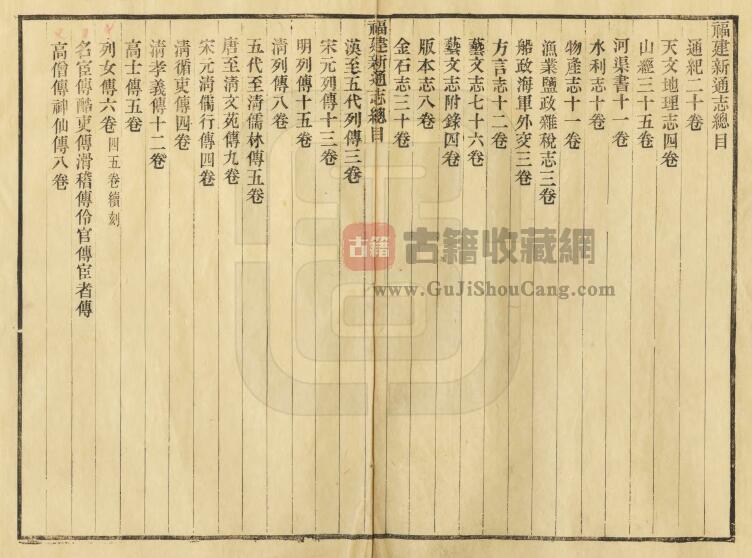 福建新通志總目
通紀二十卷
天文地理志四卷
山經三十五卷
河渠書十一卷
水利志十卷
物產志十一卷
漁業鹽政雜稅志三卷
船政海軍外交三卷
方言志十二卷
藝文志七十六卷
藝文志附錄四卷
版本志八卷
金石志三十卷
福建新通志總目
漢至五代列傳三卷
宋元列傳十三卷
明列傳十五卷
清列傳八卷
五代至清儒林傳五卷
唐至清文苑傳九卷
宋元清儒行傳四卷
清循吏傳四卷
清孝義傳十二卷
高士傳五卷
列女傳六卷四五卷續刻
名宦傳酷吏傳滑稽傳伶官傳宦者傳
高僧傳神仙傳八卷
古籍
古籍收藏網
www.GuJiShouCang.com